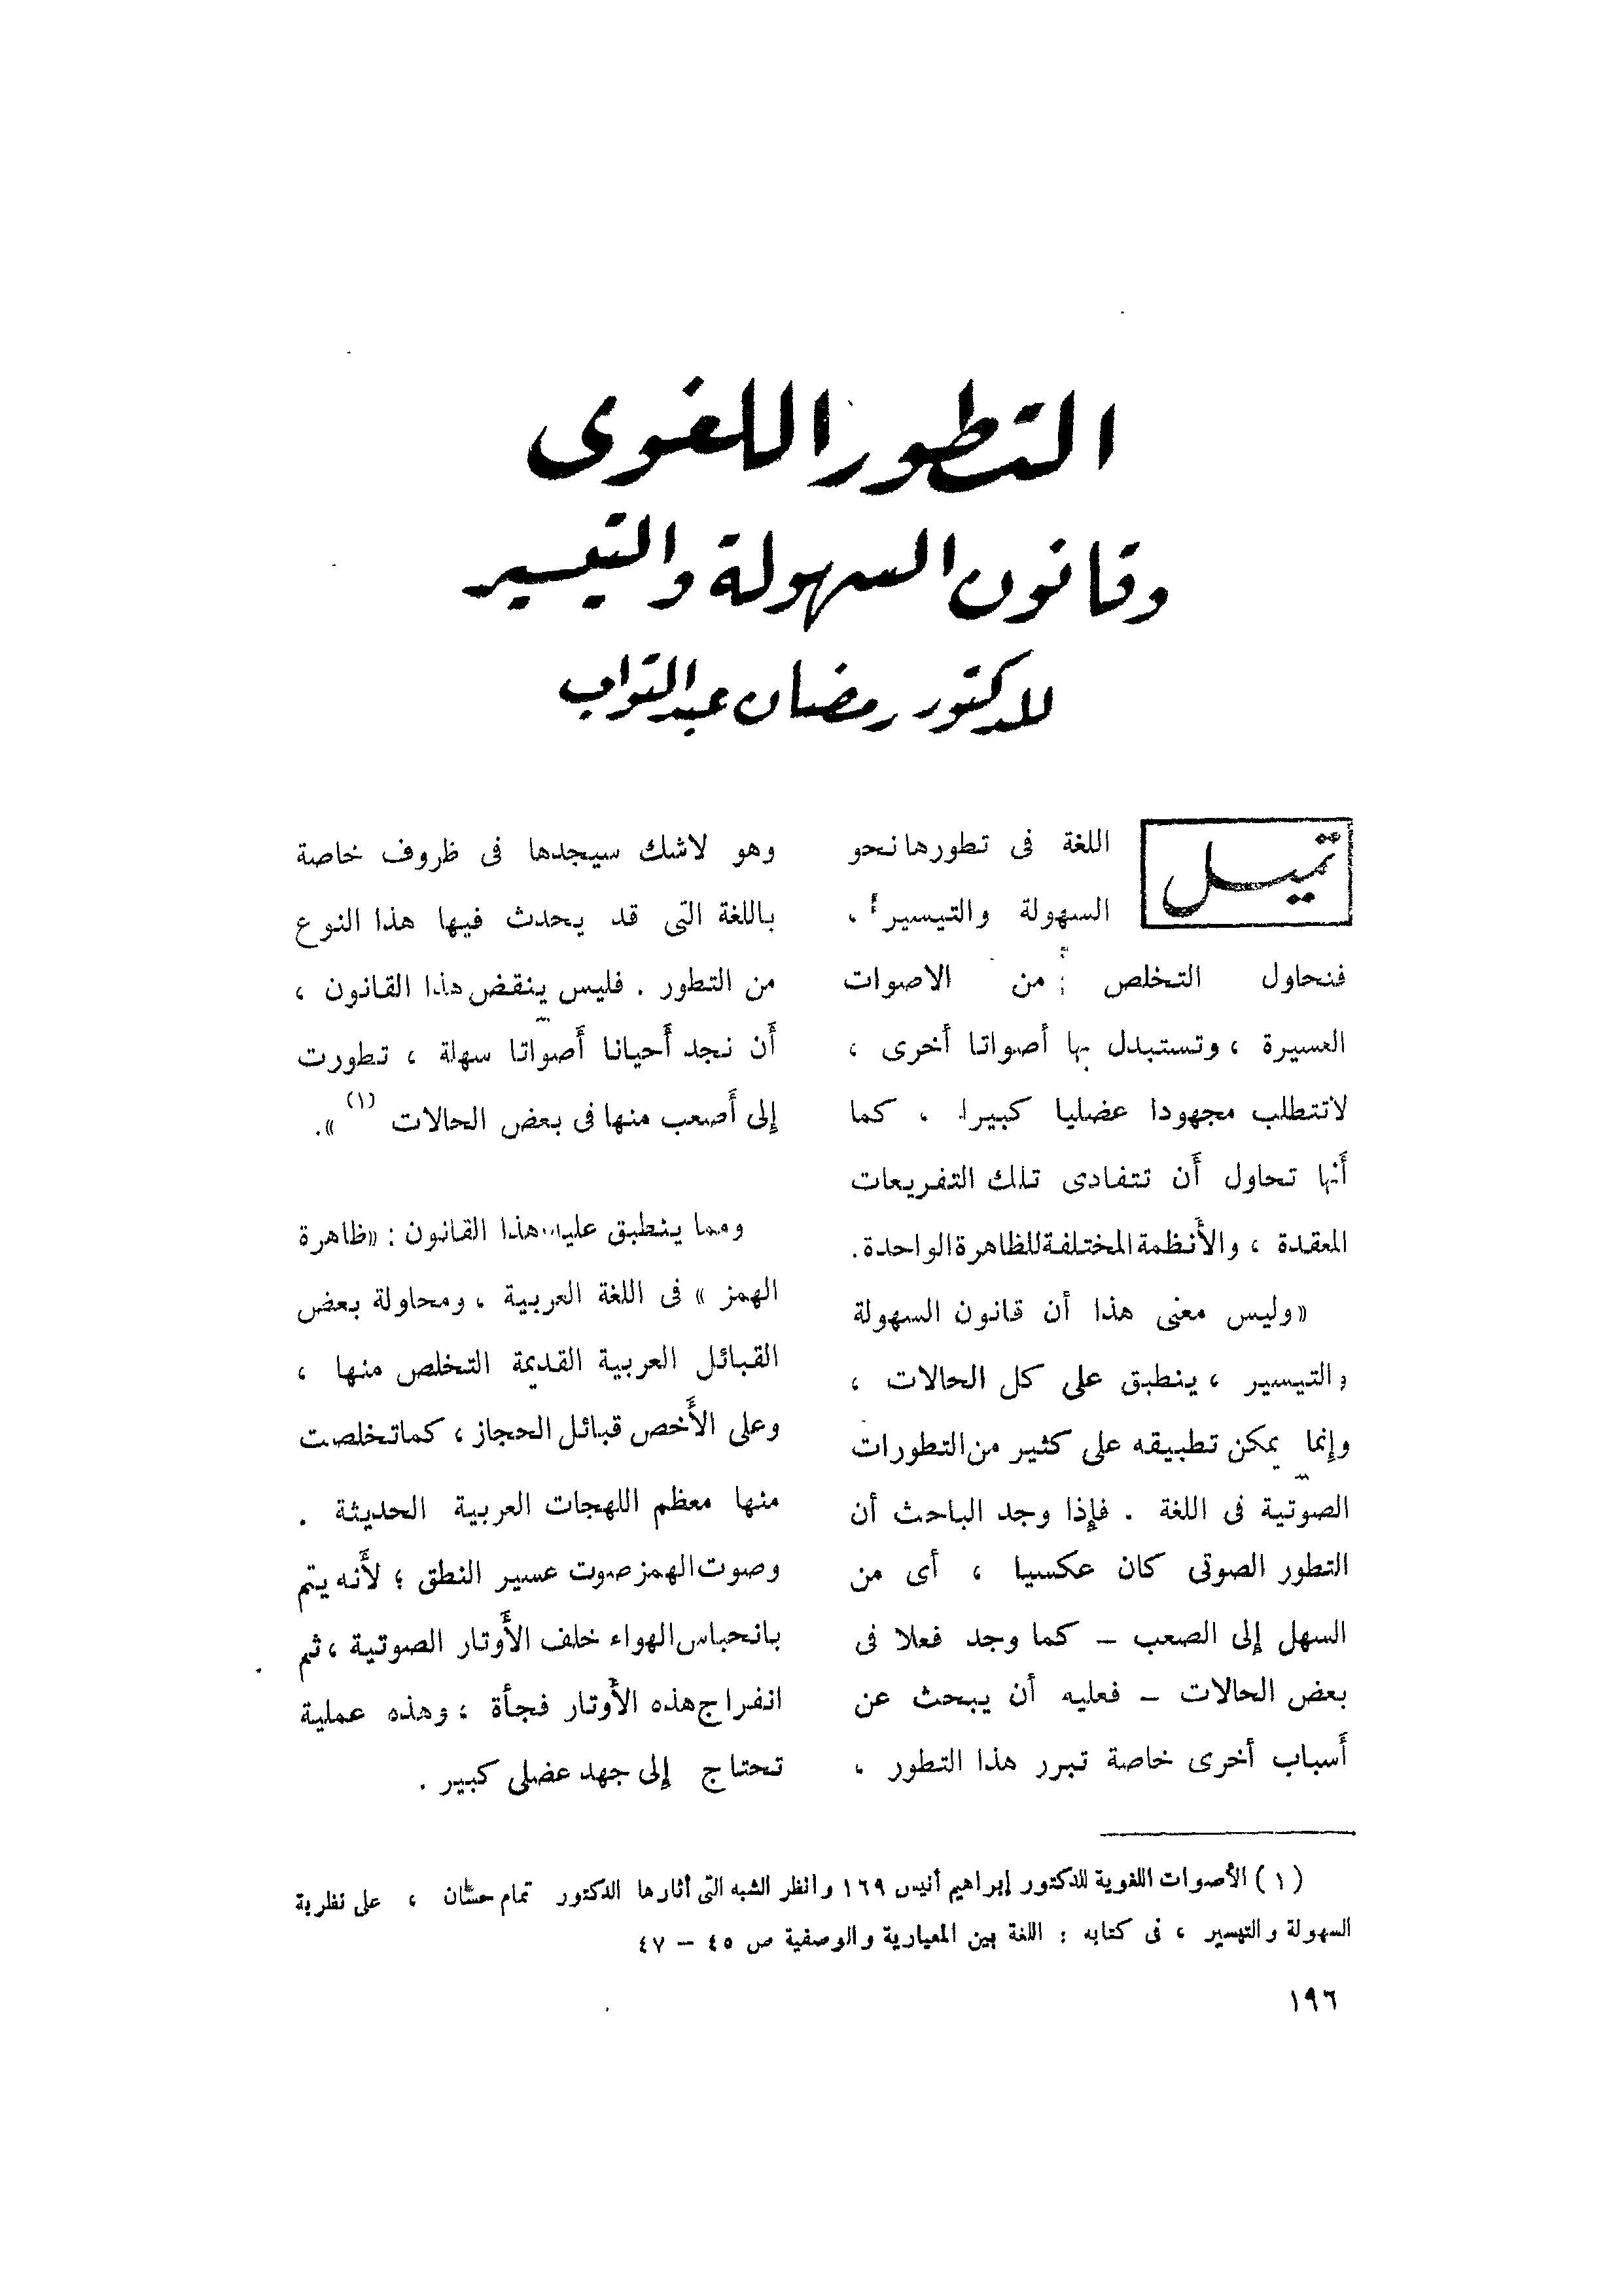 التطور اللغوى
وقانون السهولة والتيسير
للدكتور رمضان عبد التواب
تميل
اللغة فى تطورها نحو
السهولة والتيسير ،
فنحاول التخلص من الاصوات
العسيرة ، وتستبدل بها أصواتا أخرى ،
لاتتطلب مجهودا عضليا كبيرا . كما
أنها تحاول أن تتفادى تلك التفريعات
المعقدة ، والأنظمة المختلفة للظاهرة الواحدة .
«وليس معنى هذا أن قانون السهولة
والتيسير ، ينطبق على كل الحالات ،
وإنما يمكن تطبيقه على كثير من التطورات
الصوتية فى اللغة . فإذا وجد الباحث أن
التطور الصوتى كان عكسيا ، أى من
السهل إلى الصعب – كما وجد فعلا فى
بعض الحالات – فعليه أن يبحث عن
أسباب أخرى خاصة تبرر هذا التطور ،
وهو لاشك سيجدها فى ظروف خاصة
باللغة التى قد يحدث فيها هذا النوع
من التطور . فليس ينقض هذا القانون ،
أن نجد أحيانا أصواتا سهلة ، تطورت
إلى أصعب منها فى بعض الحالات (١) ».
ومما ينطبق عليه هذا القانون : «ظاهرة
الهمز » فى اللغة العربية ، ومحاولة بعض
القبائل العربية القديمة التخلص منها ،
وعلى الأخص قبائل الحجاز ، كما تخلصت
منها معظم اللهجات العربية الحديثة .
وصوت الهمز صوت عسير النطق ؛ لأنه يتم
بانحباس الهواء خلف الأوتار الصوتية ، ثم
انفراج هذه الأوتار فجأة ، وهذه عملية
تحتاج إلى جهد عضلى كبير .
( ١ ) الأصوات اللغوية للدكتور إبراهيم أنيس ١٦٩ وانظر الشبه التى أثارها الدكتور تمام حسان ، على نظرية
السهولة والتيسير ، فى كتابه : اللغة بين المعيارية والوصفية ص ٤٥ – ٤٧
١٩٦